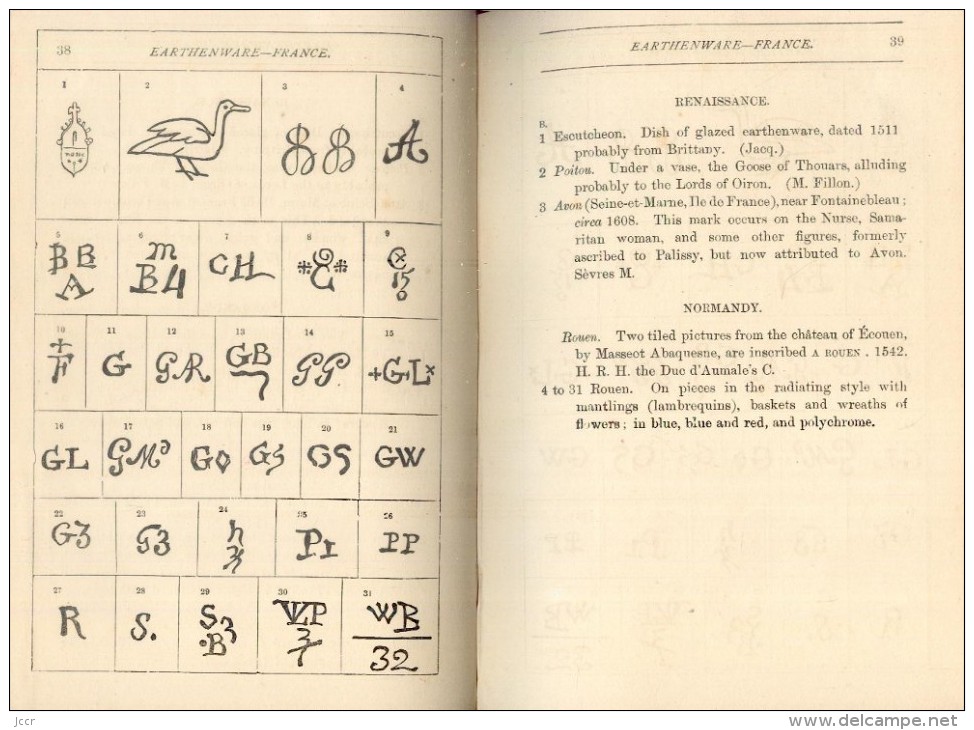 38 EARTHENWARE—FRANCE.
1 2 3 4
A
5 6 7 8 9
B B
A
m
B4
CH
15
10 11 12 13 14 15
F G GR GB GP +GLx
16 17 18 19 20 21
GL GM GO GS GS GW
22 23 24 25 26
G3 G3 h
3
P1 PP
27 28 29 30 31
R S. S3
·B
VP
3
WB
32
EARTHENWARE—FRANCE. 39
RENAISSANCE.
B.
1 Escutcheon. Dish of glazed earthenware, dated 1511
probably from Brittany. (Jacq.)
2 Poitou. Under a vase, the Goose of Thouars, alluding
probably to the Lords of Oiron. (M. Fillon.)
3 Avon (Seine-et-Marne, Ile de France), near Fontainebleau;
circa 1608. This mark occurs on the Nurse, Sama-
ritan woman, and some other figures, formerly
ascribed to Palissy, but now attributed to Avon.
Sèvres M.
NORMANDY.
Rouen. Two tiled pictures from the château of Écouen,
by Masseot Abaquesne, are inscribed A ROUEN . 1542.
H. R. H. the Duc d'Aumale's C.
4 to 31 Rouen. On pieces in the radiating style with
mantlings (lambrequins), baskets and wreaths of
flowers; in blue, blue and red, and polychrome.
jccr
www.delcampe.net